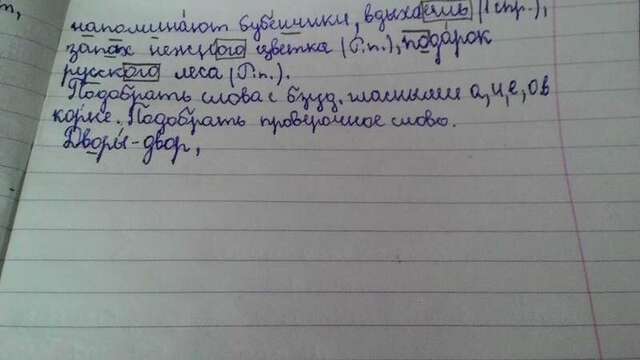 напоминают бубенчики, вдыхаешь (I спр.),
запах нежного цветка (Р.п.), подарок
русского леса (Р.п.).
Подобрать слова с безуд. гласными а, и, е, о в
корне. Подобрать проверочное слово.
Дворы - двор,